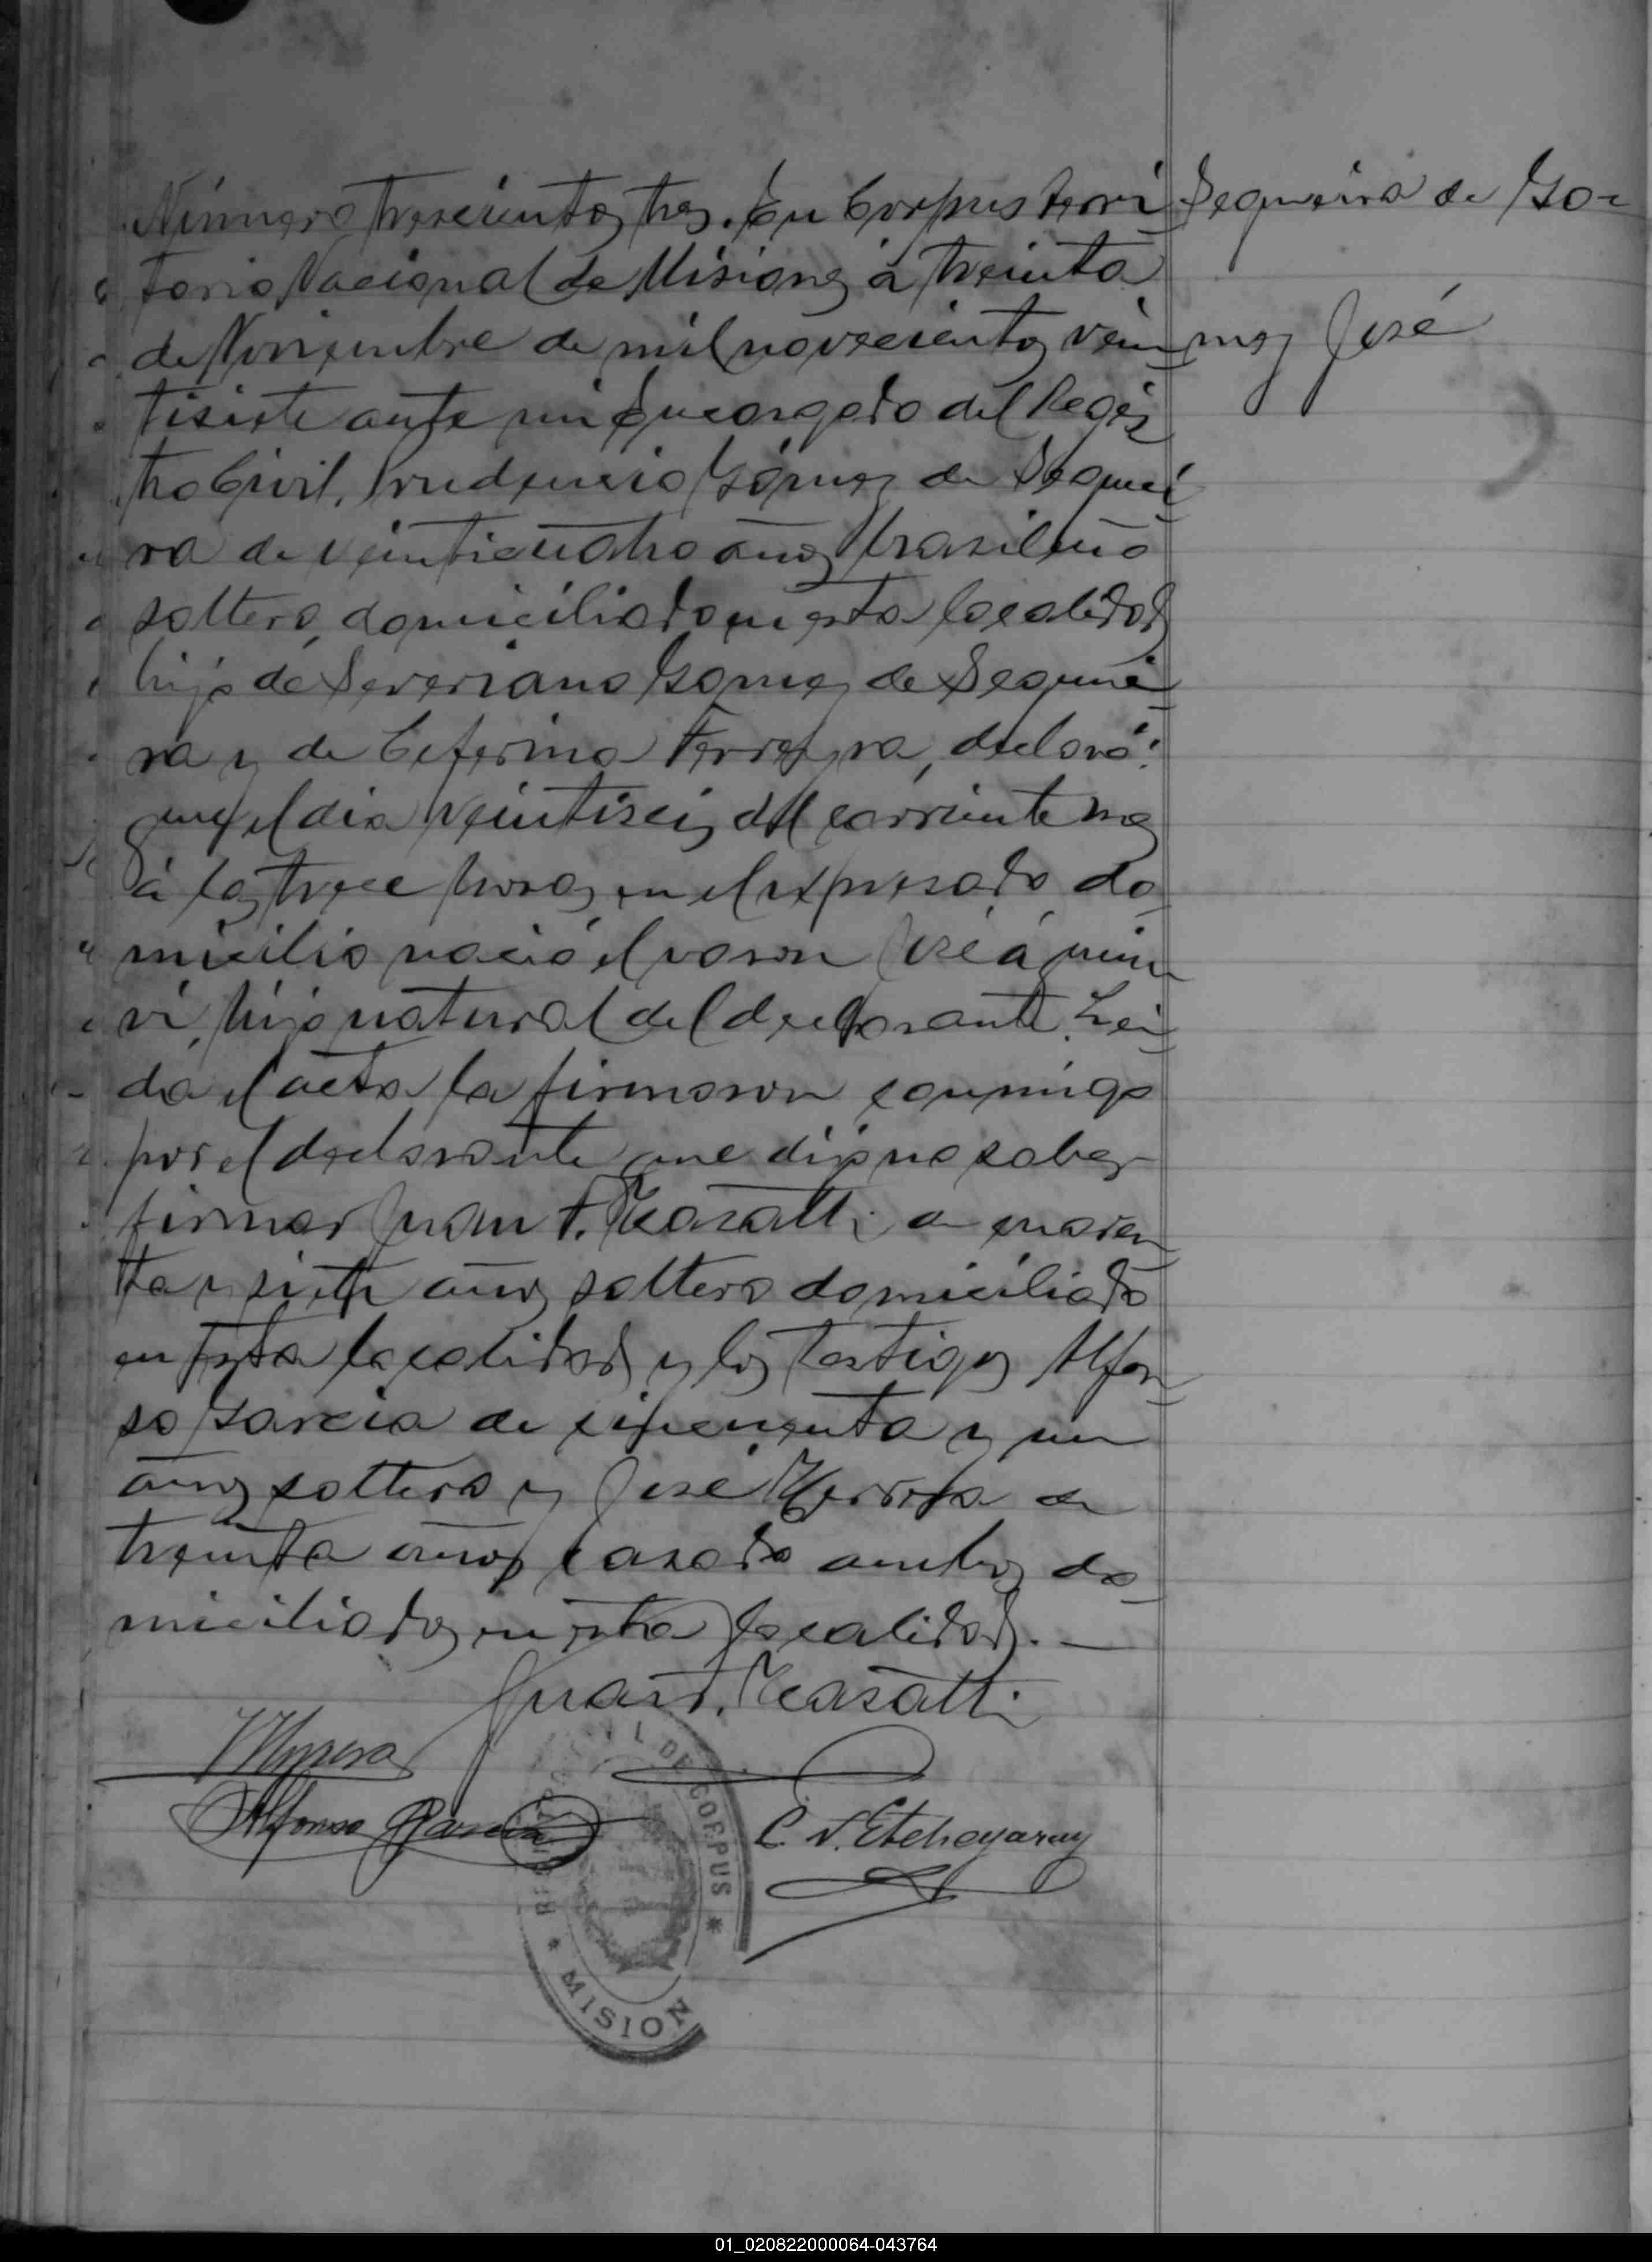 Número trescientos tres. En Corpus Terri
Sequeira de Go-
torio Nacional de Misiones á treinta
de Noviembre de mil novecientos vein
mez José
tisiete ante mi Encargado del Regis
tro Civil, Prudencio Gómez de Sequei
ra de veinticuatro años brasileño
soltero, domiciliado en esta localidad
hijo de Severiano Gomez de Sequei
ra y de Ceferina Ferreyra, declaró:
que el dia veintiseis del corriente mes
á las trece horas en el expresado do
micilio nació el varon José á quien
vi, hijo natural del declarante. Lei
da el acta la firmaron conmigo
por el declarante que dijo no saber
firmar Juan F. de cuaren
ta y siete años soltero domiciliado
en esta localidad y los testigos Alfon
so Garcia de cincuenta y un
años soltero y José de
treinta años casado ambos do
miciliados en esta localidad. —
Juan F.
Alfonso Garcia
C. V. Etchegaray
REGISTRO CIVIL DE CORPUS * MISION
01_020822000064-043764